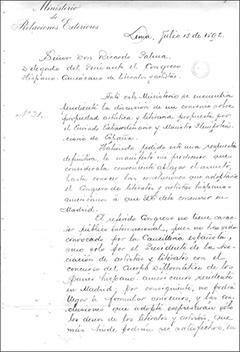 Ministerio
de
Relaciones Exteriores
Lima, Julio 15 de 1892.
Señor Don Ricardo Palma,
Delegado del Perú ante el Congreso
Hispano-Americano de Literatos y artistas.
N.º 21.
Ante este Ministerio se encuentra
pendiente la discusión de un convenio sobre
propiedad artística y literaria, propuesto por
el Enviado Extraordinario y Ministro Plenipoten-
ciario de España.
Habiendo pedido este una respuesta
definitiva, le manifesté mi
consideraba conveniente aplazar el asunto,
hasta conocer las conclusiones que adoptase
el Congreso de literatos y artistas hispano-
americanos á que US. debe concurrir en
Madrid.
El referido Congreso no tiene carac-
ter público internacional, pues no ha sido
convocado por la Cancillería española,
sino solo por el Presidente de la Aso-
ciación de artistas y literatos con el
concurso del Cuerpo Diplomático de los
países hispano-americanos residente
en Madrid; por consiguiente, no podrá
llegar á formular convenios, y las con-
clusiones que adopte expresarán solo
los deseos de los literatos y artistas, que
más tarde podrán ser adoptados, en